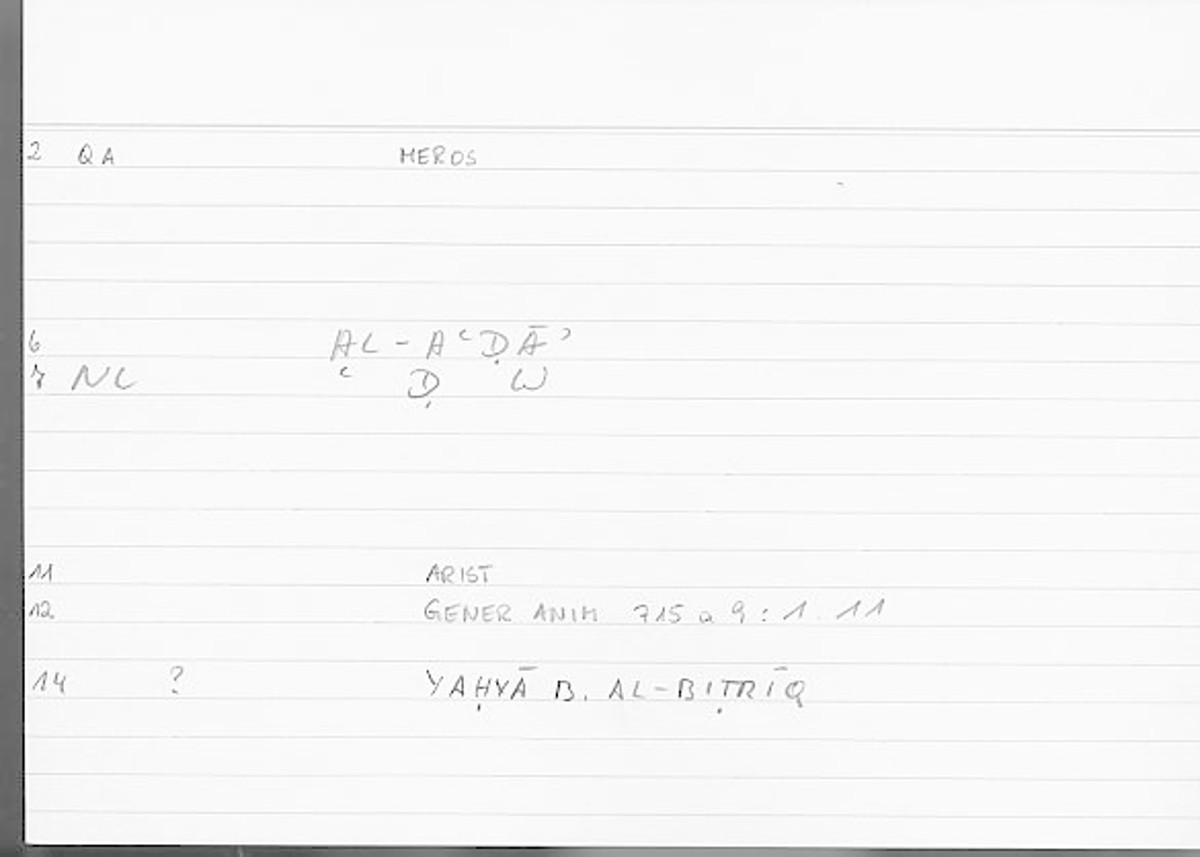 2 QA MEROS
6 AL-AʿḌĀʾ
7 NL ʿ Ḍ W
11 ARIST
12 GENER ANIM 715 a 9 : 1.11
14 ? YAḤYĀ B. AL-BIṬRĪQ